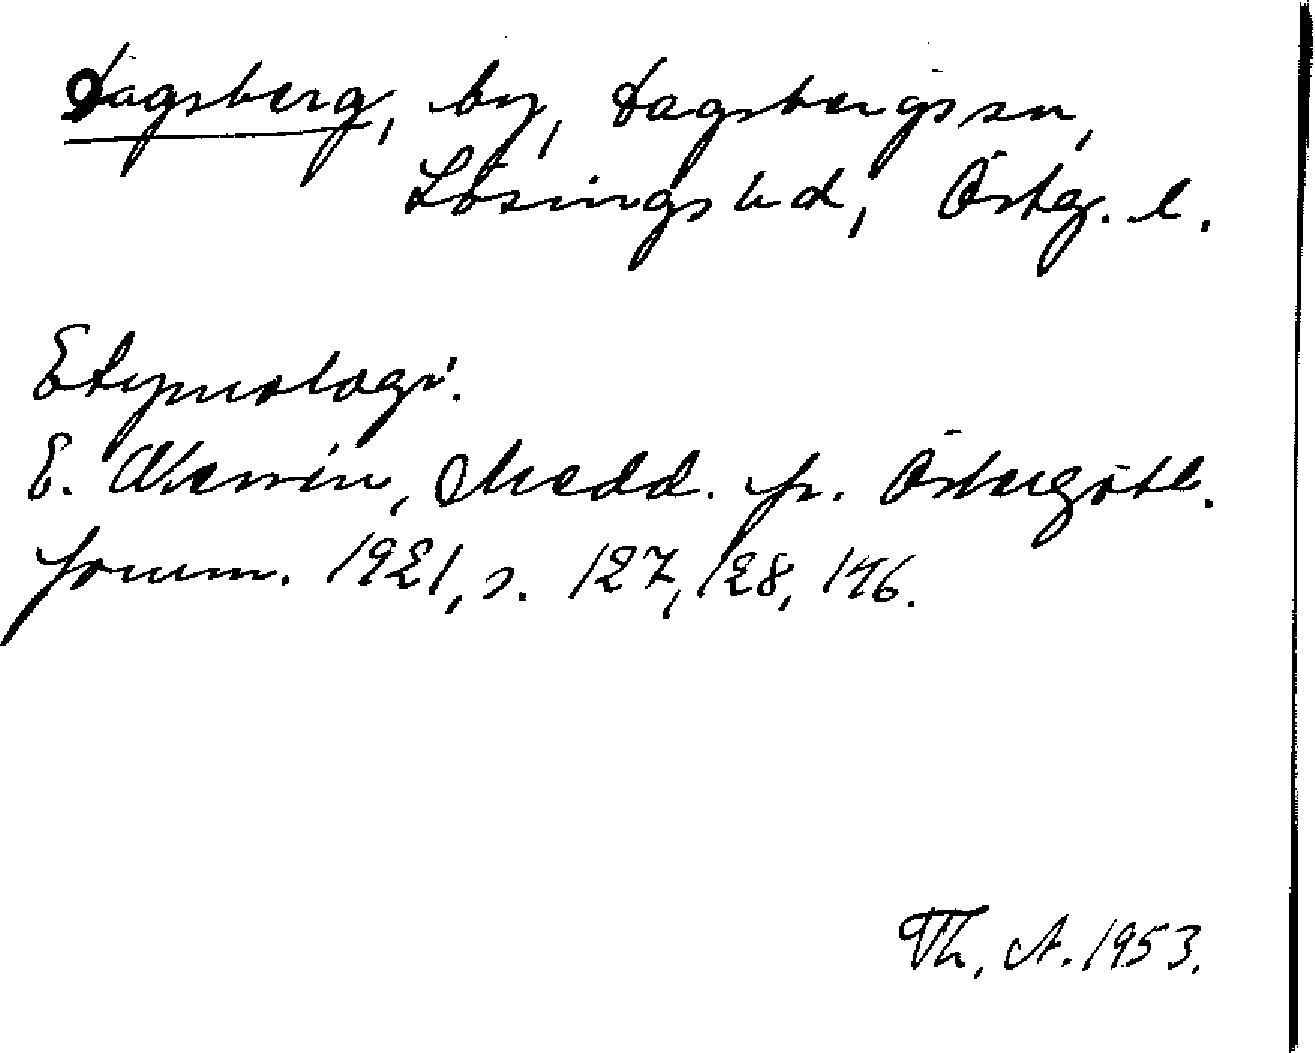 Dagsberg, by, Dagsbergs sn,
Lösings hd, Östg. l.
Etymologi.
E. Wessén, Medd. fr. Östergötl.
fornm. 1921, s. 127, 128, 146.
Th. A. 1953.